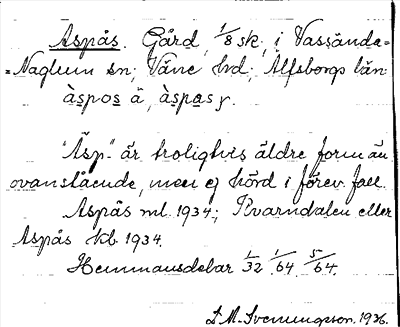 Aspås. Gård, 1/8 sk, i Vassända=
=Naglum sn; Väne hd; Älfsborgs län
àspos å, àspasy.
"Äsp-" är troligtvis äldre form än
ovanstående, men ej hörd i förev. fall.
Aspås ml. 1934; Kvarndalen eller
Aspås kb 1934.
Hemmansdelar 1/32 1/64 5/64.
L. M. Svenungsson. 1936.